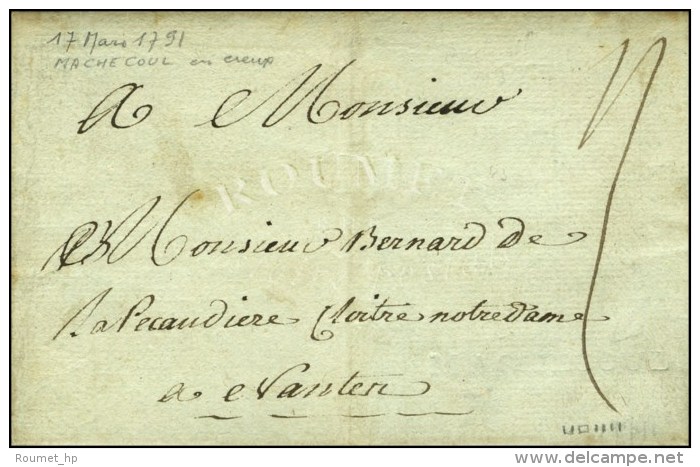 17 Mars 1791
MACHECOUL en creux
A Monsieur
ROUMET
Monsieur Bernard de
la Pecaudiere Cloitre notre Dame
a Nantes
Roumet_hp
www.delcampe.net